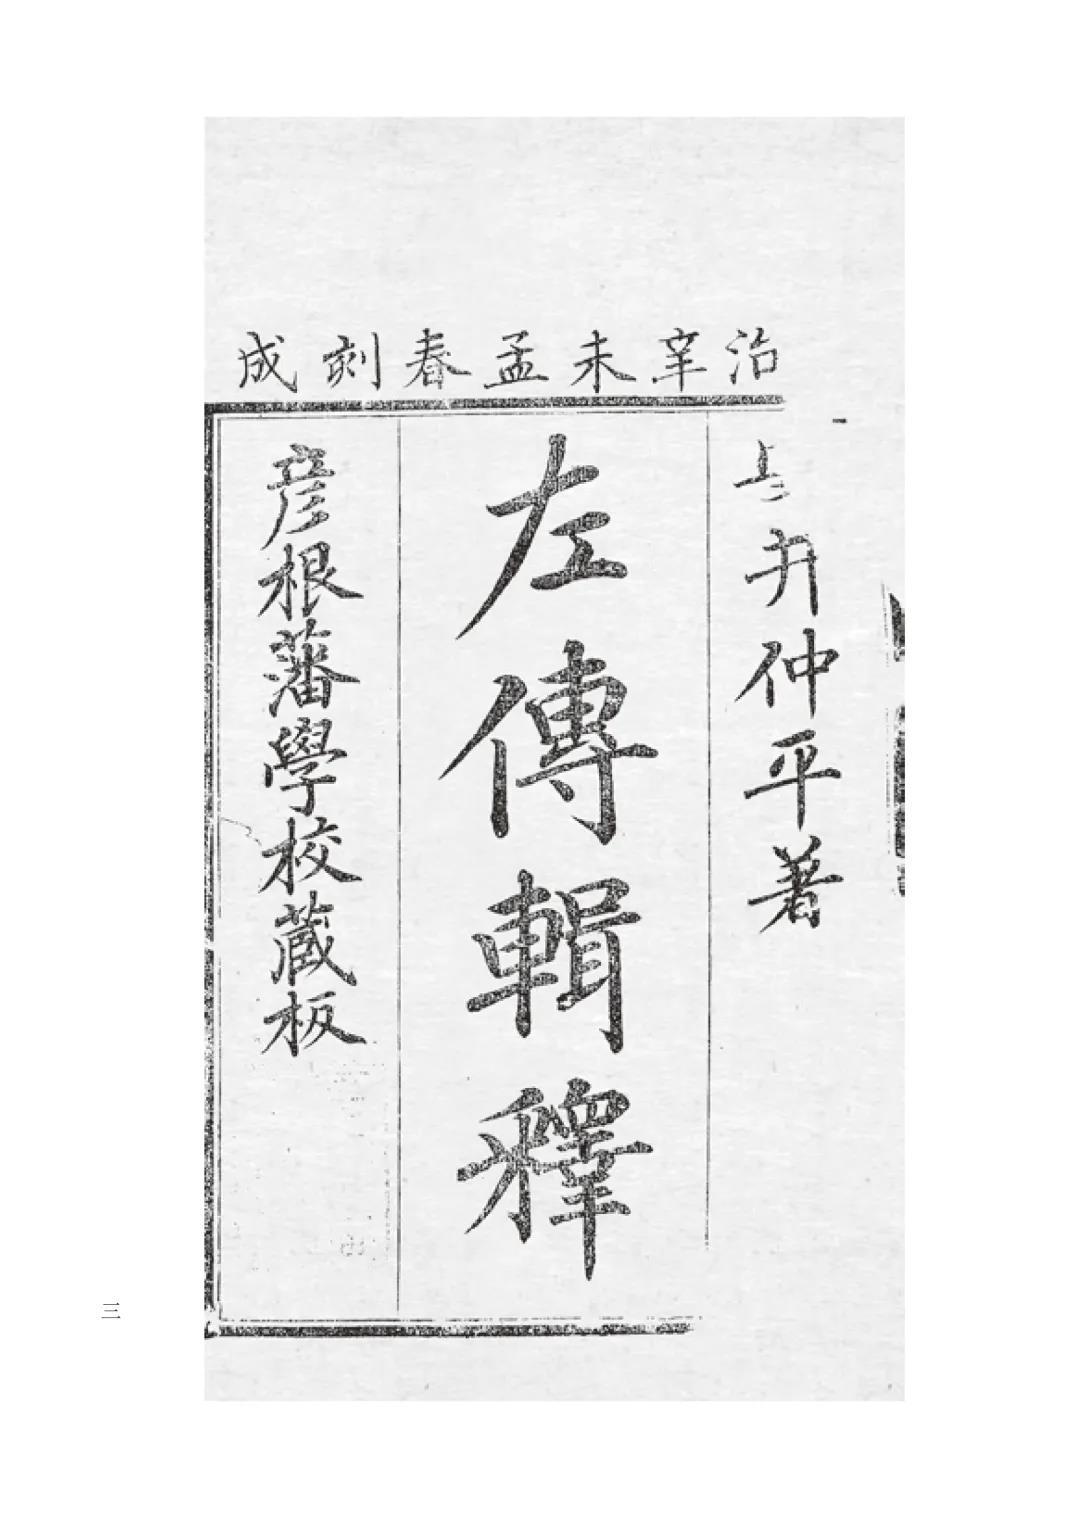 治辛未孟春刻成
井仲平著
左傳輯釋
彦根藩學校蔵板
三